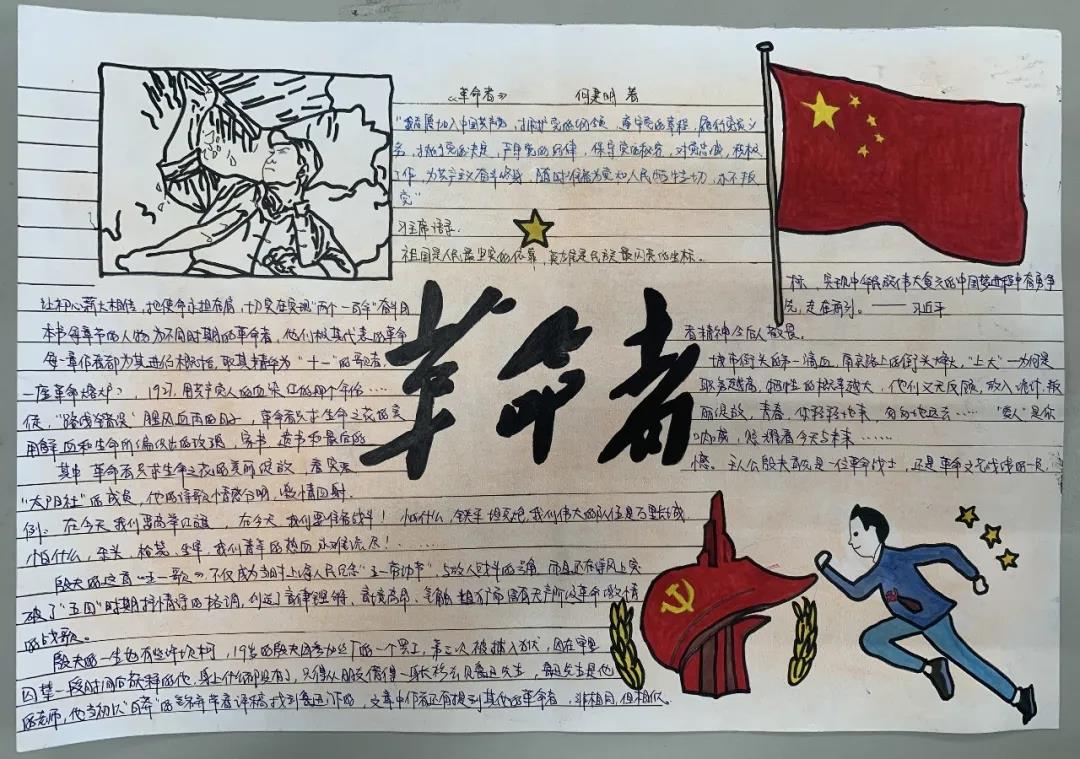 《革命者》 何建明 著
"我志愿加入中国共产党，拥护党的纲领，遵守党的章程，履行党员义
务，执行党的决定，严守党的纪律，保守党的秘密，对党忠诚，积极
工作，为共产主义奋斗终身，随时准备为党和人民牺牲一切，永不叛
党"
习主席语录:
祖国是人民最坚实的依靠，英雄是民族最闪亮的坐标。
让初心薪火相传，把使命永担在肩，切实在实现"两个一百年"奋斗目
标、实现中华民族伟大复兴的中国梦进程中奋勇争
先，走在前列。——习近平
革命者
本书每章节的人物为不同时期的革命者，他们极其代表的革命
者精神令后人敬畏。
每一章作者都为其进行相对应，取其精华为"十一"的歌者，
城市街头的第一滴血，南京路上的街头烽火，"上大"—为何是
一座革命熔炉?，1927，用共产党人的血染红的那个年份……
职务越高，牺牲的概率越大，他们义无反顾，
使，"路线错误"腥风血雨的日子，革命者只求生命之花的
丽绽放，青春，你轻轻地来，匆匆地远去……"爱人"是你
用鲜血和生命所编织出的玫瑰，家书、遗书和最后的
吶喊，照耀着今天与未来……
其中 革命者只求生命之花的美丽绽放，看
憾。主人公殷夫前既是一位革命战士，还是革命文艺战线的一员，
"太阳社"的成员，他的诗歌情感分明，激情四射.
例: 在今天，我们要高举红旗，在今天，我们要准备战斗! 怕什么，铁车坦克炮，我们伟大的队伍是万里长城
怕什么，杀头、枪毙、坐牢，我们青年的热血永难流尽!……
殷夫的这首《五一歌》，不仅成为当时上海人民纪念"五一劳动节"，与敌人
破了"五四"时期抒情诗的格调，创造了旋律铿锵、意境高昂、气魄粗犷而富有无产阶级革命激情
的战歌。
殷夫的一生也有些许坎坷，19岁的殷夫因参加丝厂的一个罢工，第三次被捕入狱，因在牢里
囚禁一段时间后获释的他，身上什么都没有了，只得从朋友借得一身长衫去见鲁迅先生，鲁迅先生是他
的老师，他当初以"白莽"的笔名 译稿找到鲁迅 的，文章中作者还有提到其他的革命者，非相同，但相似